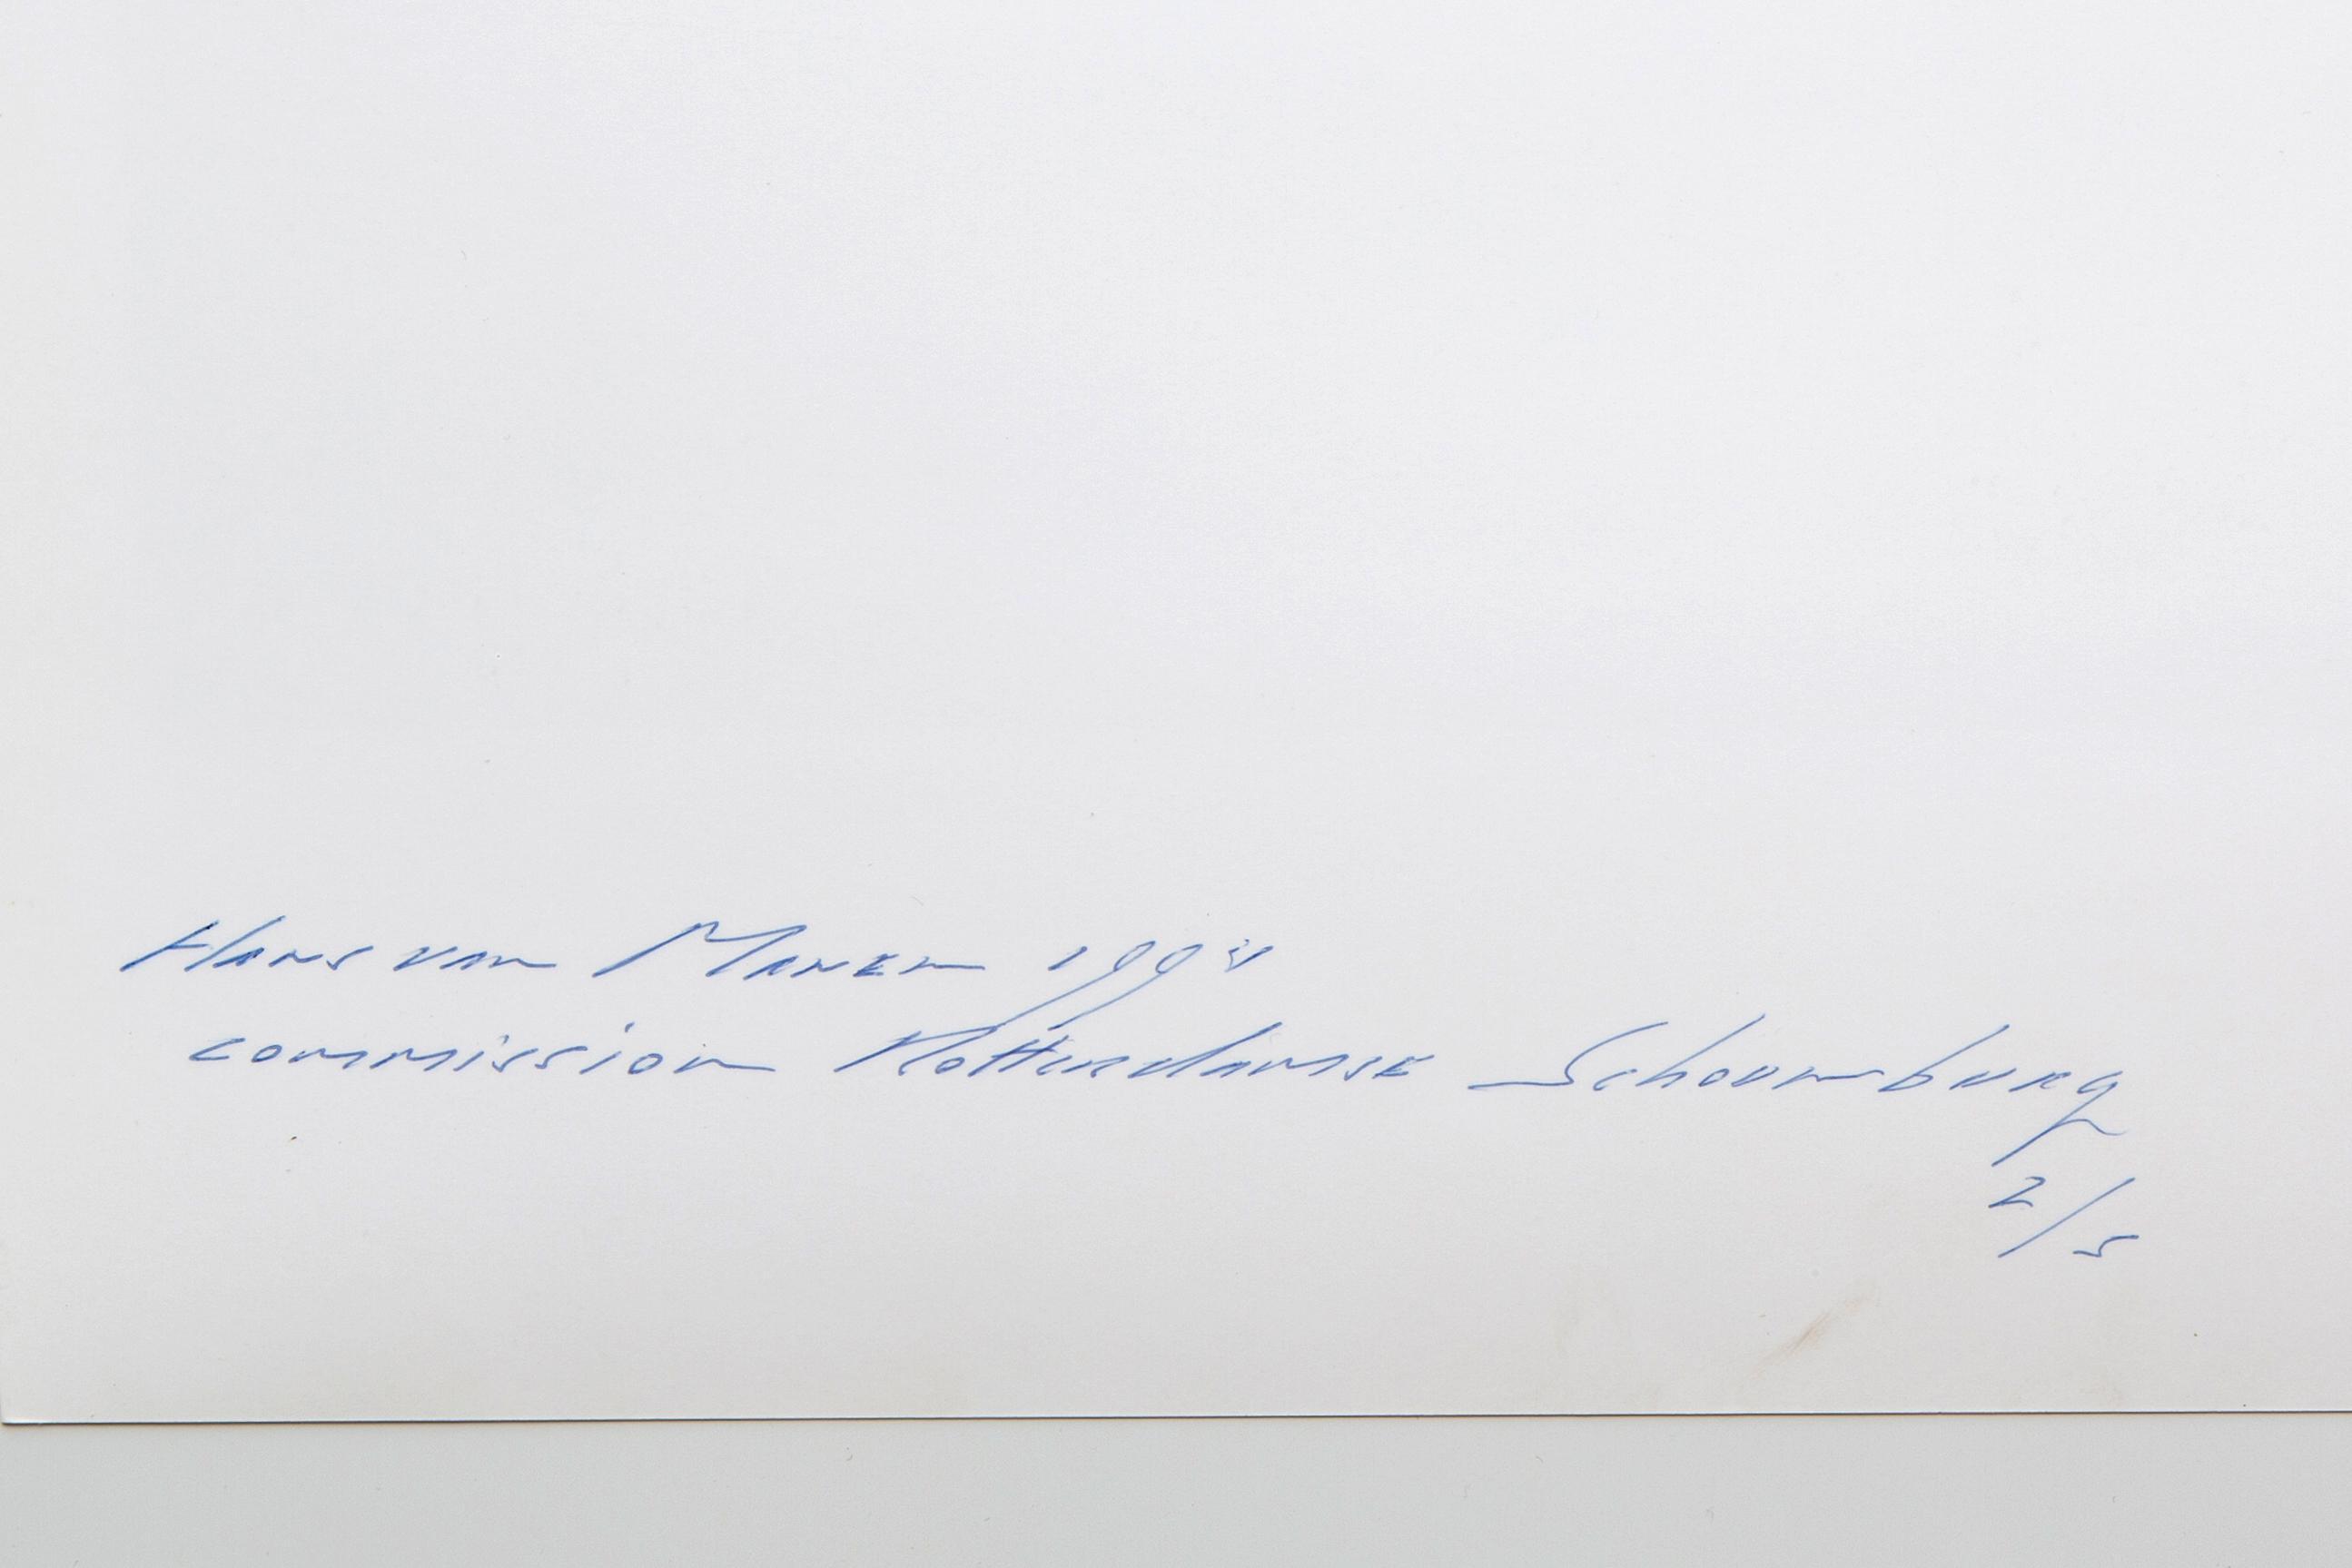 Hans van Manen
commission Rotterdamse Schouwburg
2/5